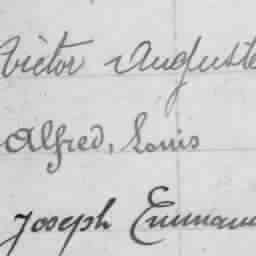 Victor Auguste
Alfred, Louis
Joseph Emmanu